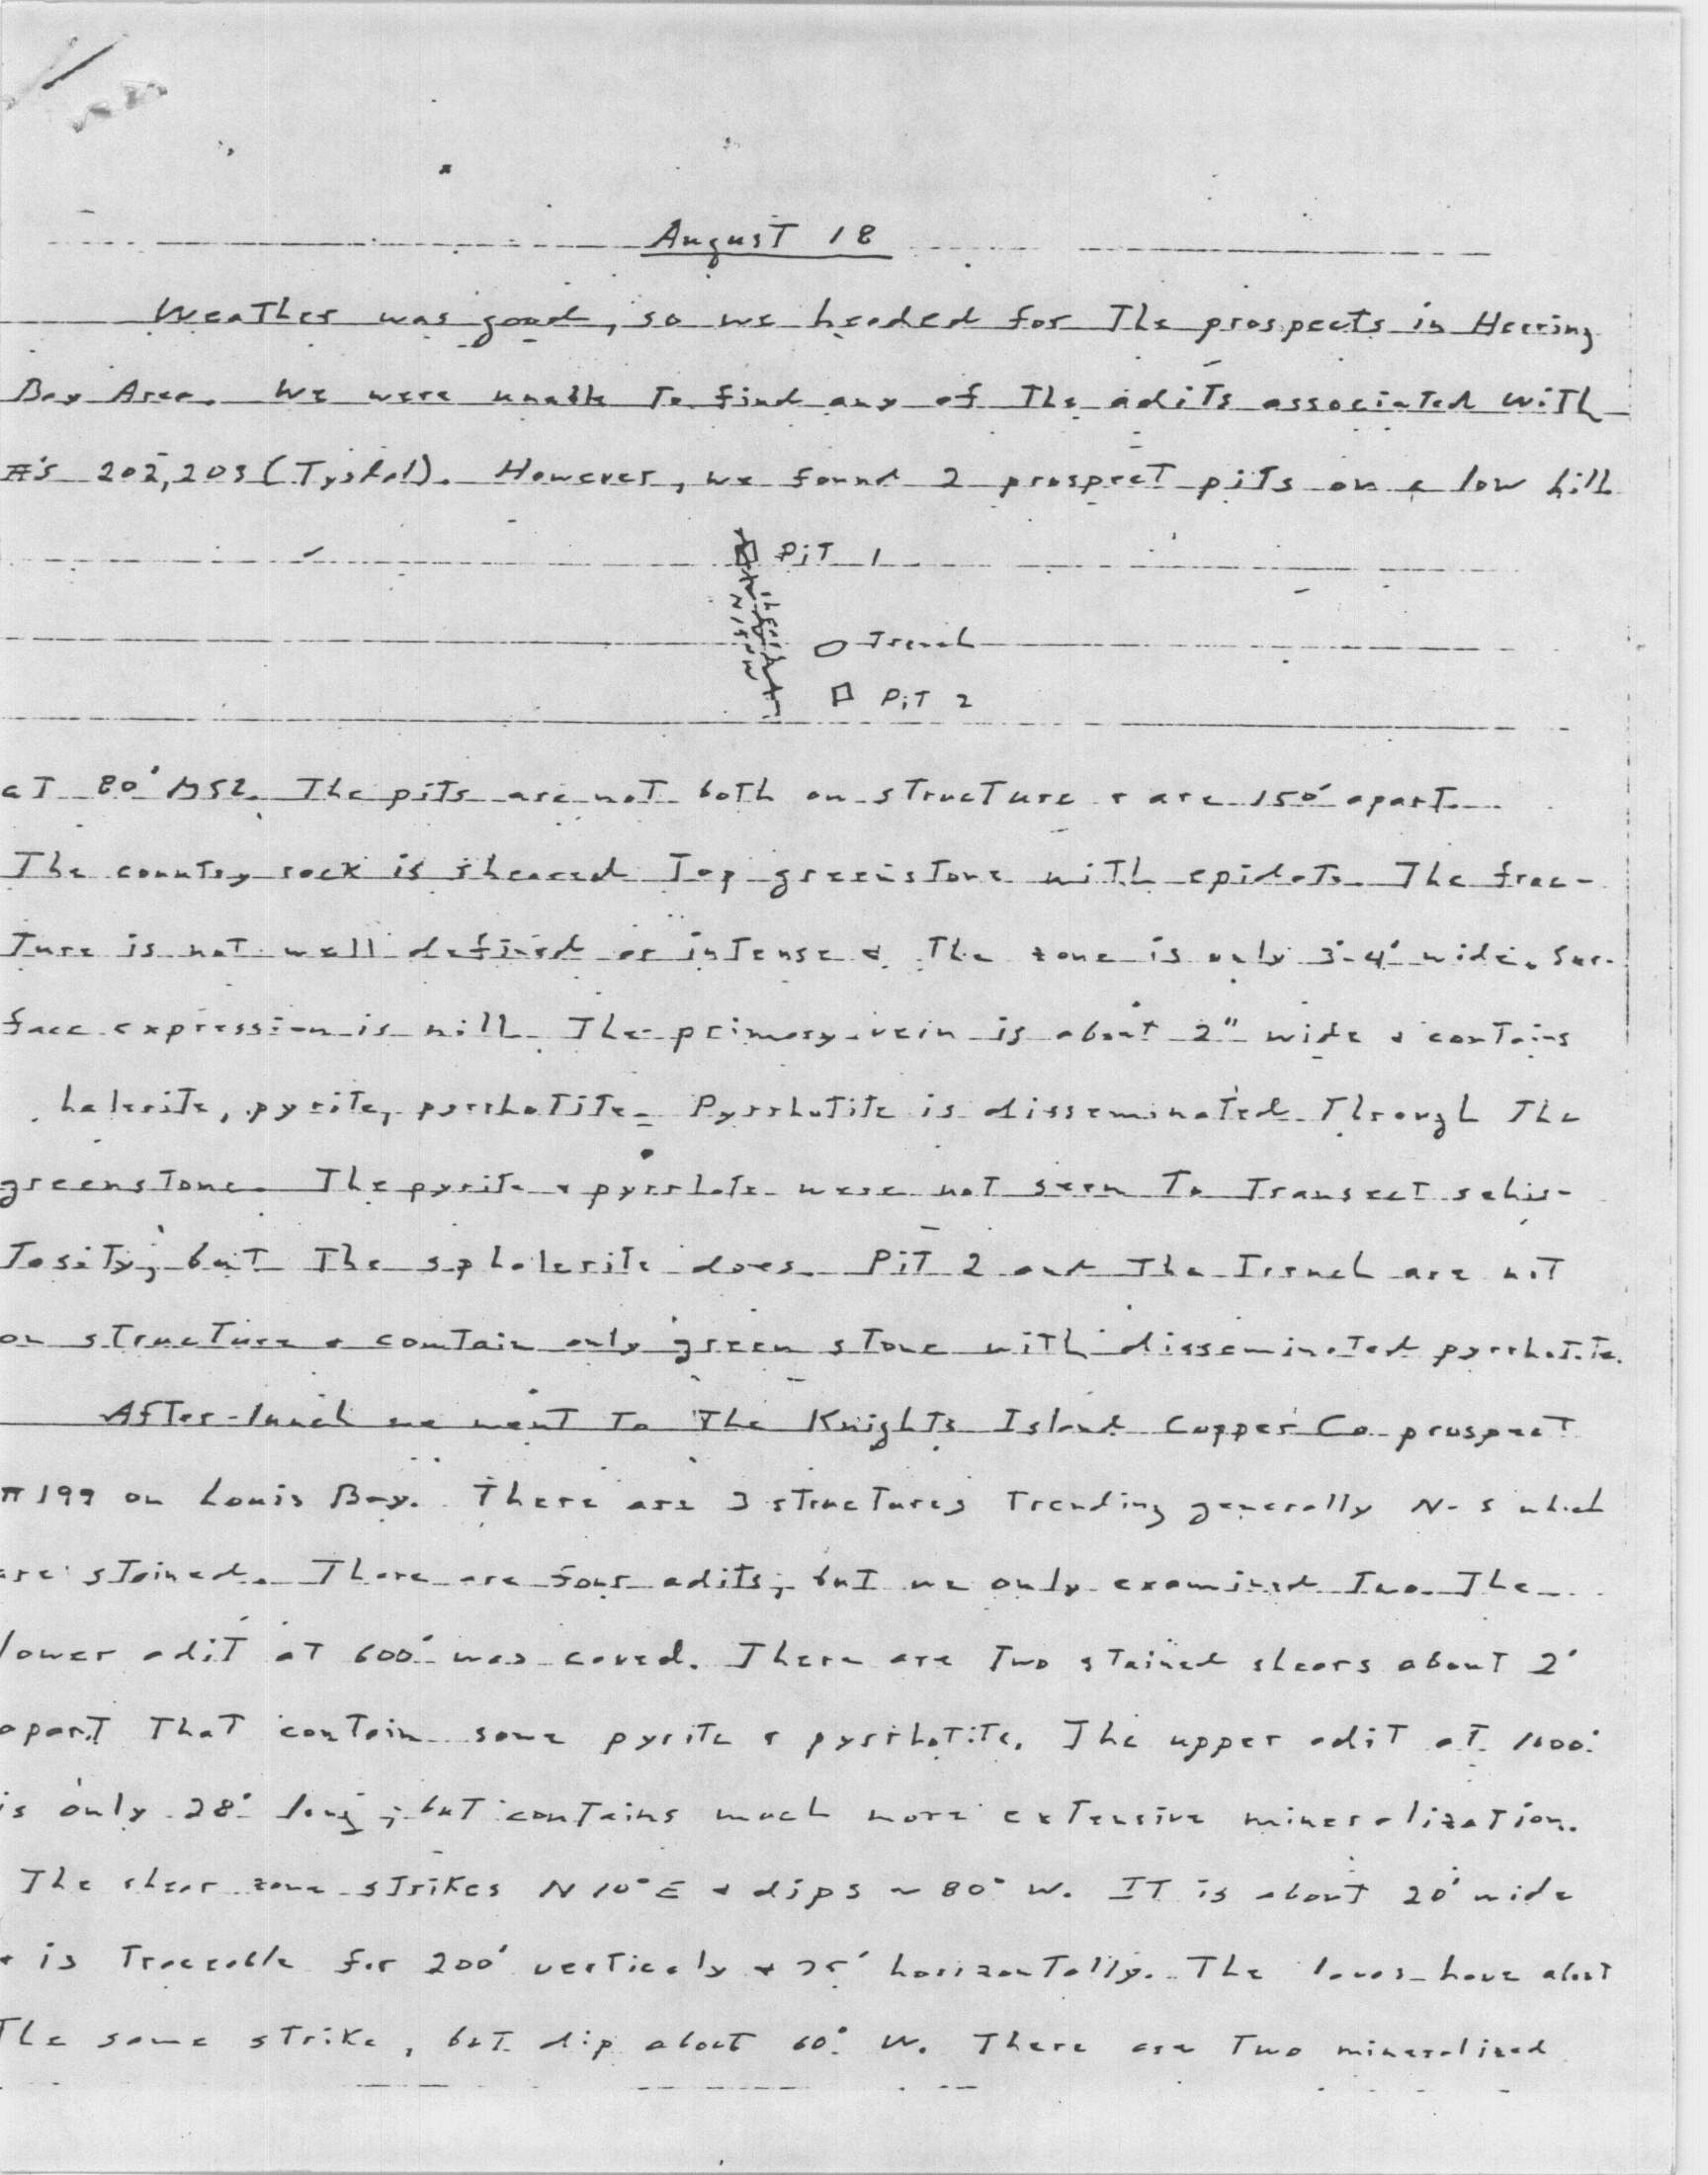 August 18
Weather was good, so we headed for the prospects in Herring
Bay Area. We were unable to find any of the adits associated with
#'s 202, 203 (Tysdal). However, we found 2 prospect pits on a low hill
Pit 1
shear
N 15° W
Trench
Pit 2
at 80' MSL. The pits are not both on structure & are 150' apart.
The country rock is sheared Tep greenstone with epidote. The frac-
ture is not well defined or intense & the zone is only 3'-4' wide. Sur-
face expression is nill. The primary vein is about 2" wide & contains
halerite, pyrite, pyrrhotite. Pyrrhotite is disseminated through the
greenstone. The pyrite & pyrrhote were not seen to transect schis-
tosity, but the sphalerite does. Pit 2 and the trench are not
on structure & contain only green stone with disseminated pyrrhotite.
After lunch we went to the Knights Island Copper Co prospect
#199 on Louis Bay. There are 3 structures trending generally N-S which
are stained. There are four adits, but we only examined two. The
lower adit at 600' was caved. There are two stained shears about 2'
apart that contain some pyrite & pyrrhotite. The upper adit at 1600'
is only 28' long, but contains much more extensive mineralization.
The shear zone strikes N 10° E & dips ~ 80° W. It is about 20' wide
& is traceable for 200' verticaly & 75' horizontally. The lavas have about
the same strike, but dip about 60° W. There are two mineralized